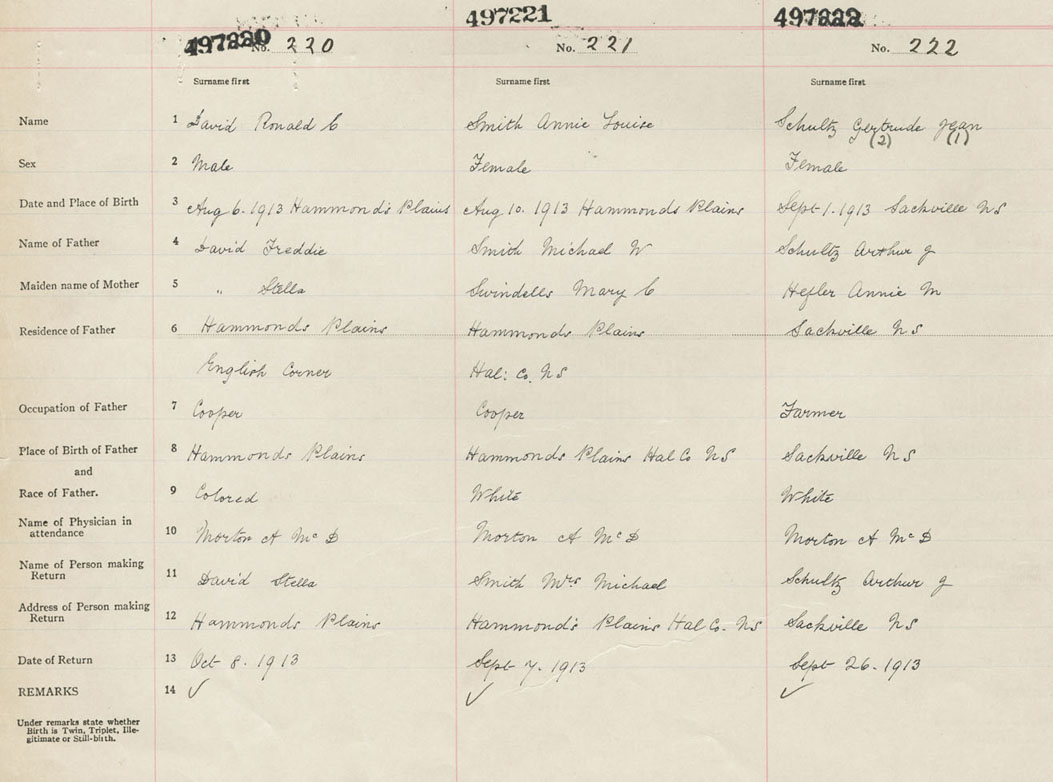 497220 497221 497222
No. 220 No. 221 No. 222
Surname first Surname first Surname first
Name 1 David Ronald C Smith Annie Louise Schultz Gertrude Jean
(2) (1)
Sex 2 Male Female Female
Date and Place of Birth 3 Aug 6. 1913 Hammonds Plains Aug 10. 1913 Hammonds Plains Sept 1. 1913 Sackville NS
Name of Father 4 David Freddie Smith Michael W Schultz Arthur J
Maiden name of Mother 5 " Stella Swindells Mary C Hefler Annie M
Residence of Father 6 Hammonds Plains Hammonds Plains Sackville NS
English Corner Hal: Co. NS
Occupation of Father 7 Cooper Cooper Farmer
Place of Birth of Father 8 Hammonds Plains Hammonds Plains Hal Co NS Sackville NS
and
Race of Father. 9 Colored White White
Name of Physician in attendance 10 Morton A McD Morton A McD Morton A McD
Name of Person making Return 11 David Stella Smith Mrs Michael Schultz Arthur J
Address of Person making Return 12 Hammonds Plains Hammond's Plains Hal Co. NS Sackville NS
Date of Return 13 Oct 8. 1913 Sept 7. 1913 Sept 26. 1913
REMARKS 14 ✓ ✓ ✓
Under remarks state whether
Birth is Twin, Triplet, Ille-
gitimate or Still-birth.